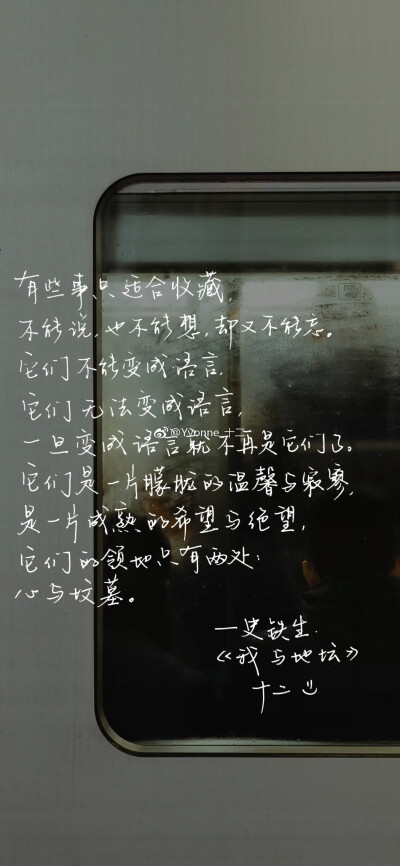 有些事只适合收藏,
不能说,也不能想,却又不能忘。
它们不能变成语言,
它们无法变成语言,
@Yvonne_十二
一旦变成语言就不再是它们了。
它们是一片朦胧的温馨与寂寥,
是一片成熟的希望与绝望,
它们的领地只有两处:
心与坟墓。
—史铁生.
《我与地坛》
十二